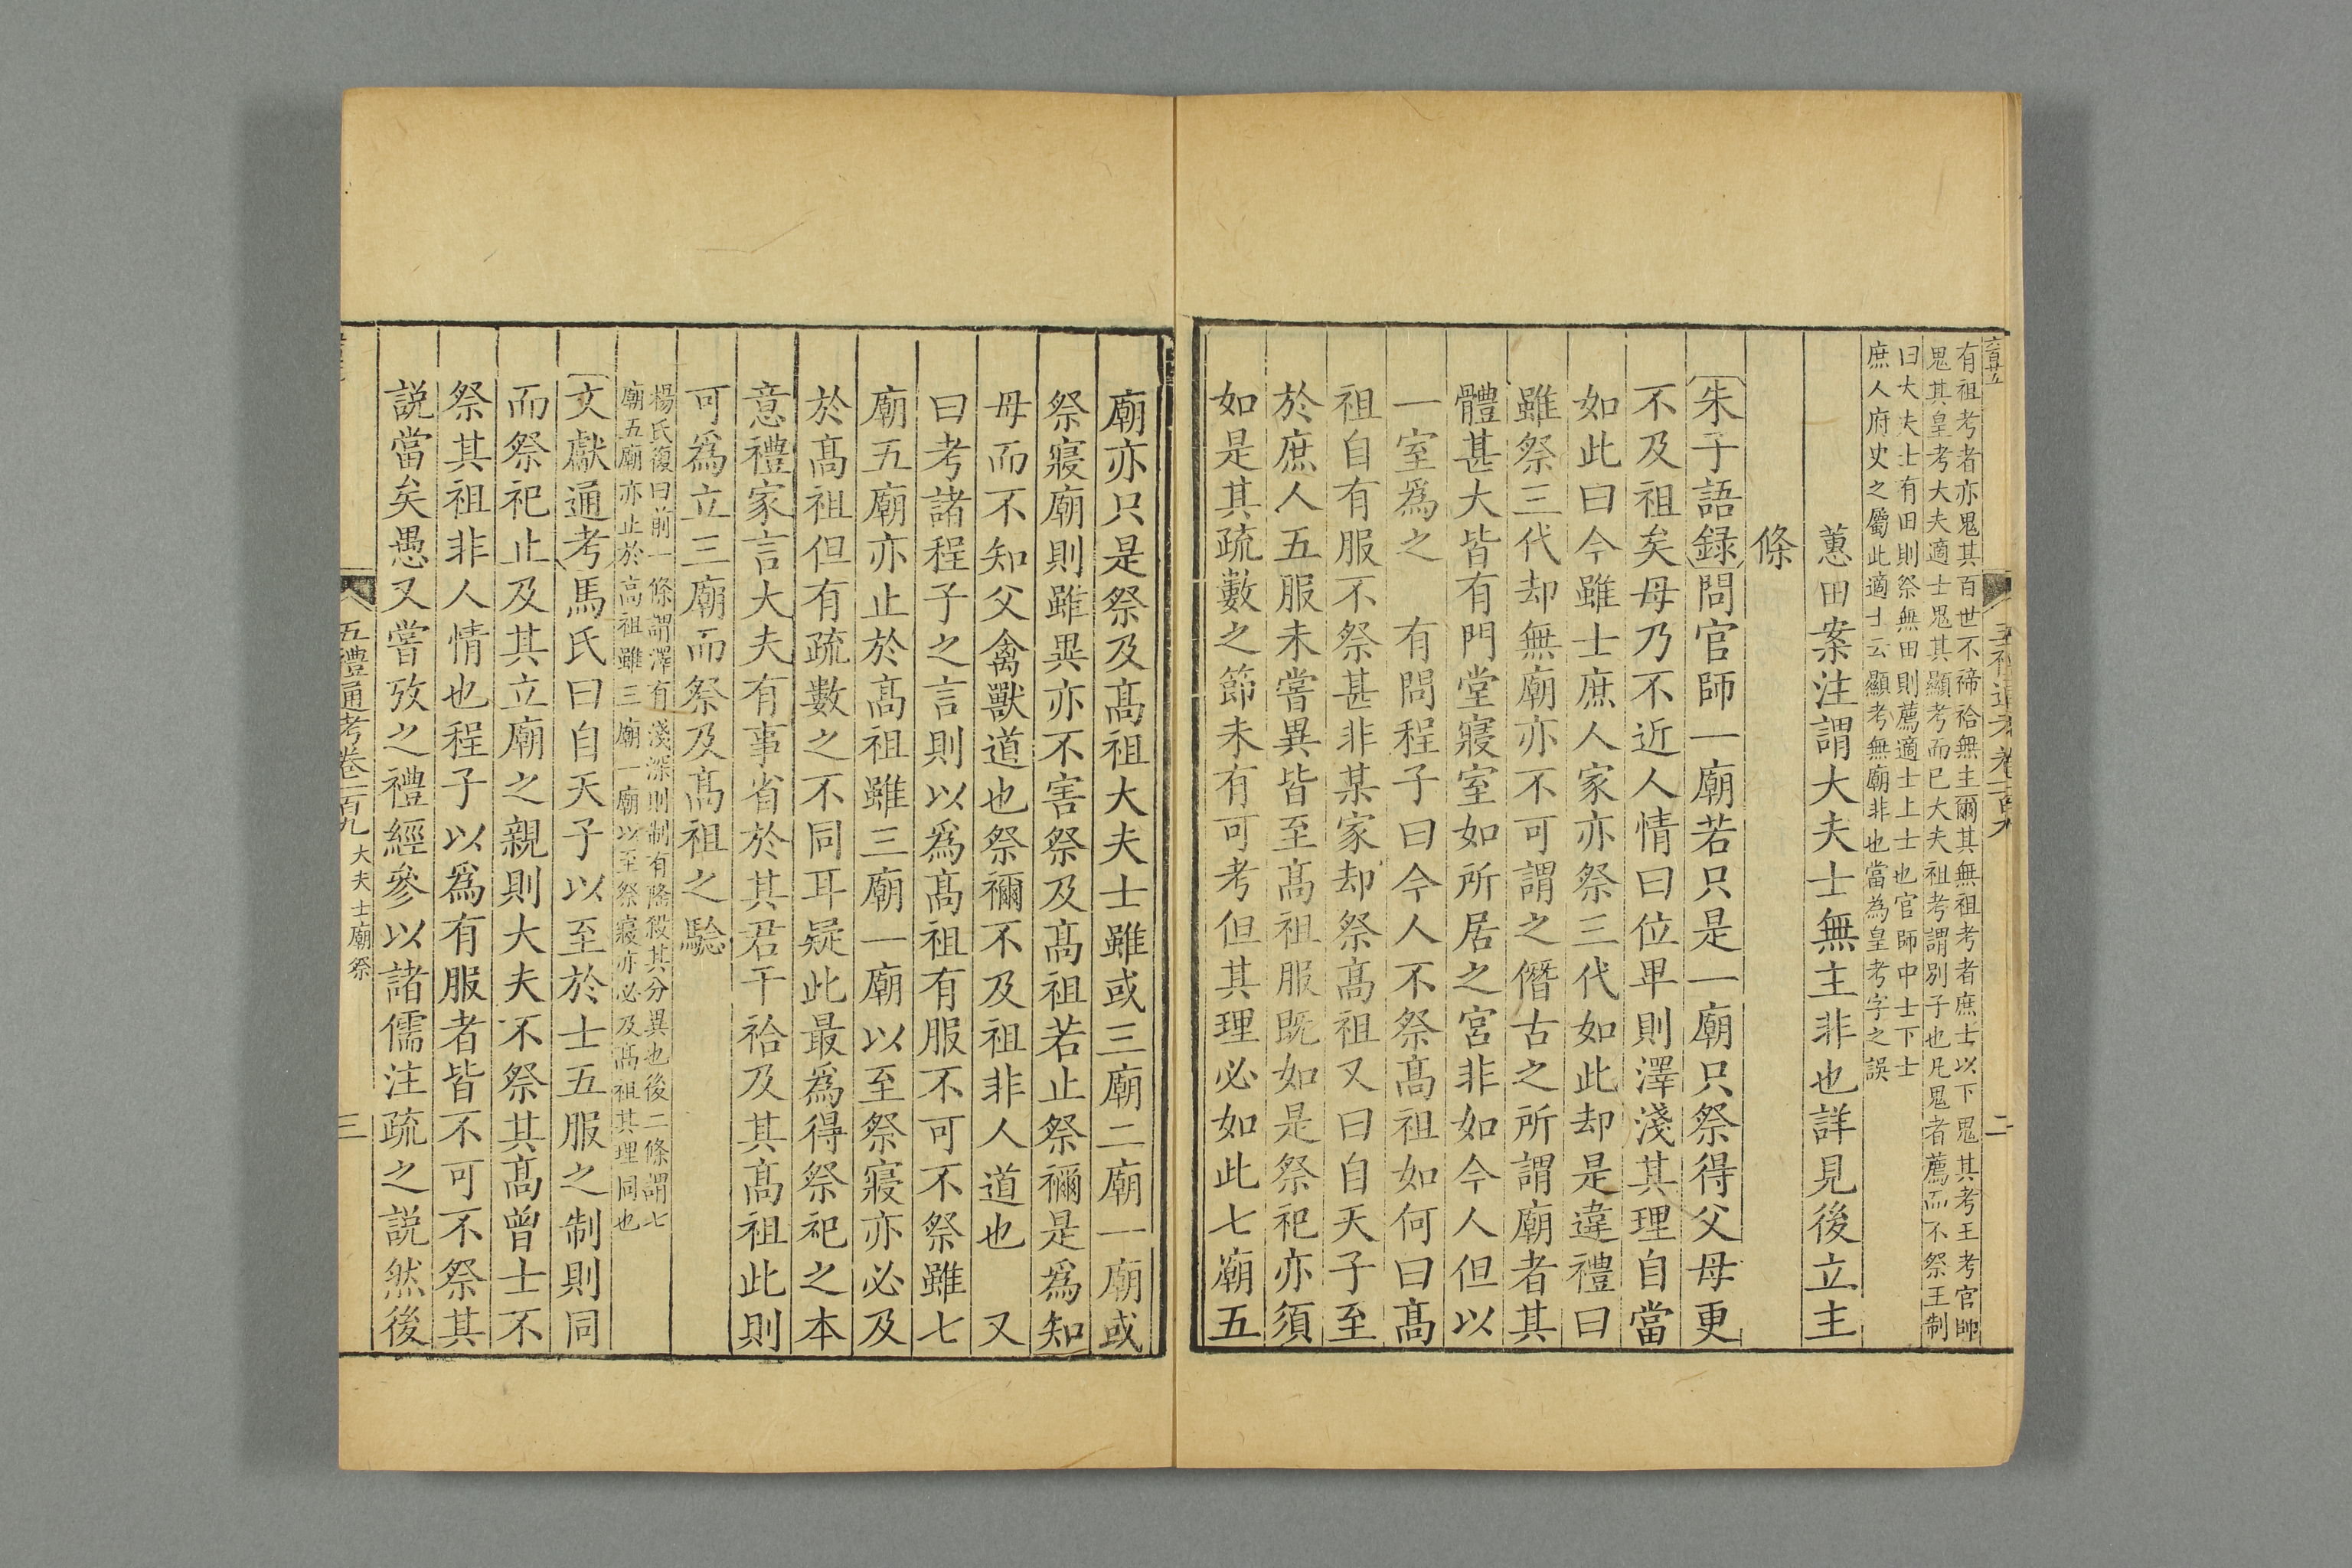 有祖考者亦鬼其百世不禘祫無主爾其無祖考者庶士以下鬼其考王考官師
鬼其皇考大夫適士鬼其顯考而已大夫祖考謂別子也凡鬼者薦而不祭王制
曰大夫士有田則祭無田則薦適士上士也官師中士下士
庶人府史之屬此適士云顯考無廟非也當為皇考字之誤
蕙田案注謂大夫士無主非也詳見後立主
條
朱子語録問官師一廟若只是一廟只祭得父母更
不及祖矣毋乃不近人情曰位卑則澤淺其理自當
如此曰今雖士庶人家亦祭三代如此却是違禮曰
雖祭三代却無廟亦不可謂之僭古之所謂廟者其
體甚大皆有門堂寢室如所居之宮非如今人但以
一室爲之 有問程子曰今人不祭髙祖如何曰髙
祖自有服不祭甚非某家却祭髙祖又曰自天子至
於庶人五服未嘗異皆至髙祖服既如是祭祀亦須
如是其疏數之節未有可考但其理必如此七廟五
廟亦只是祭及髙祖大夫士雖或三廟二廟一廟或
祭寢廟則雖異亦不害祭及髙祖若止祭禰是爲知
母而不知父禽獸道也祭禰不及祖非人道也 又
曰考諸程子之言則以爲髙祖有服不可不祭雖七
廟五廟亦止於髙祖雖三廟一廟以至祭寢亦必及
於髙祖但有疏數之不同耳疑此最爲得祭祀之本
意禮家言大夫有事省於其君干祫及其髙祖此則
可爲立三廟而祭及髙祖之驗
楊氏復曰前一條謂澤有淺深則制有隆殺其分異也後二條謂七
廟五廟亦止於高祖雖三廟一廟以至祭寢亦必及髙祖其理同也
文獻通考馬氏曰自天子以至於士五服之制則同
而祭祀止及其立廟之親則大夫不祭其髙曾士不
祭其祖非人情也程子以爲有服者皆不可不祭其
説當矣愚又嘗攷之禮經參以諸儒注疏之説然後
五禮通考卷一百九 大夫士廟祭 三